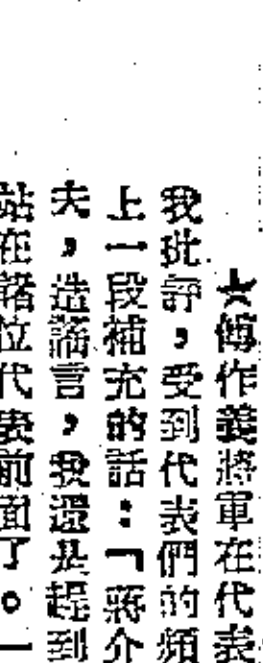 ★傅作義將軍在代表
我批評，受到代表們的頻
上一段補充的話：「蔣介
夫，造謠言，我還是趕到
站在諸位代表前面了。」